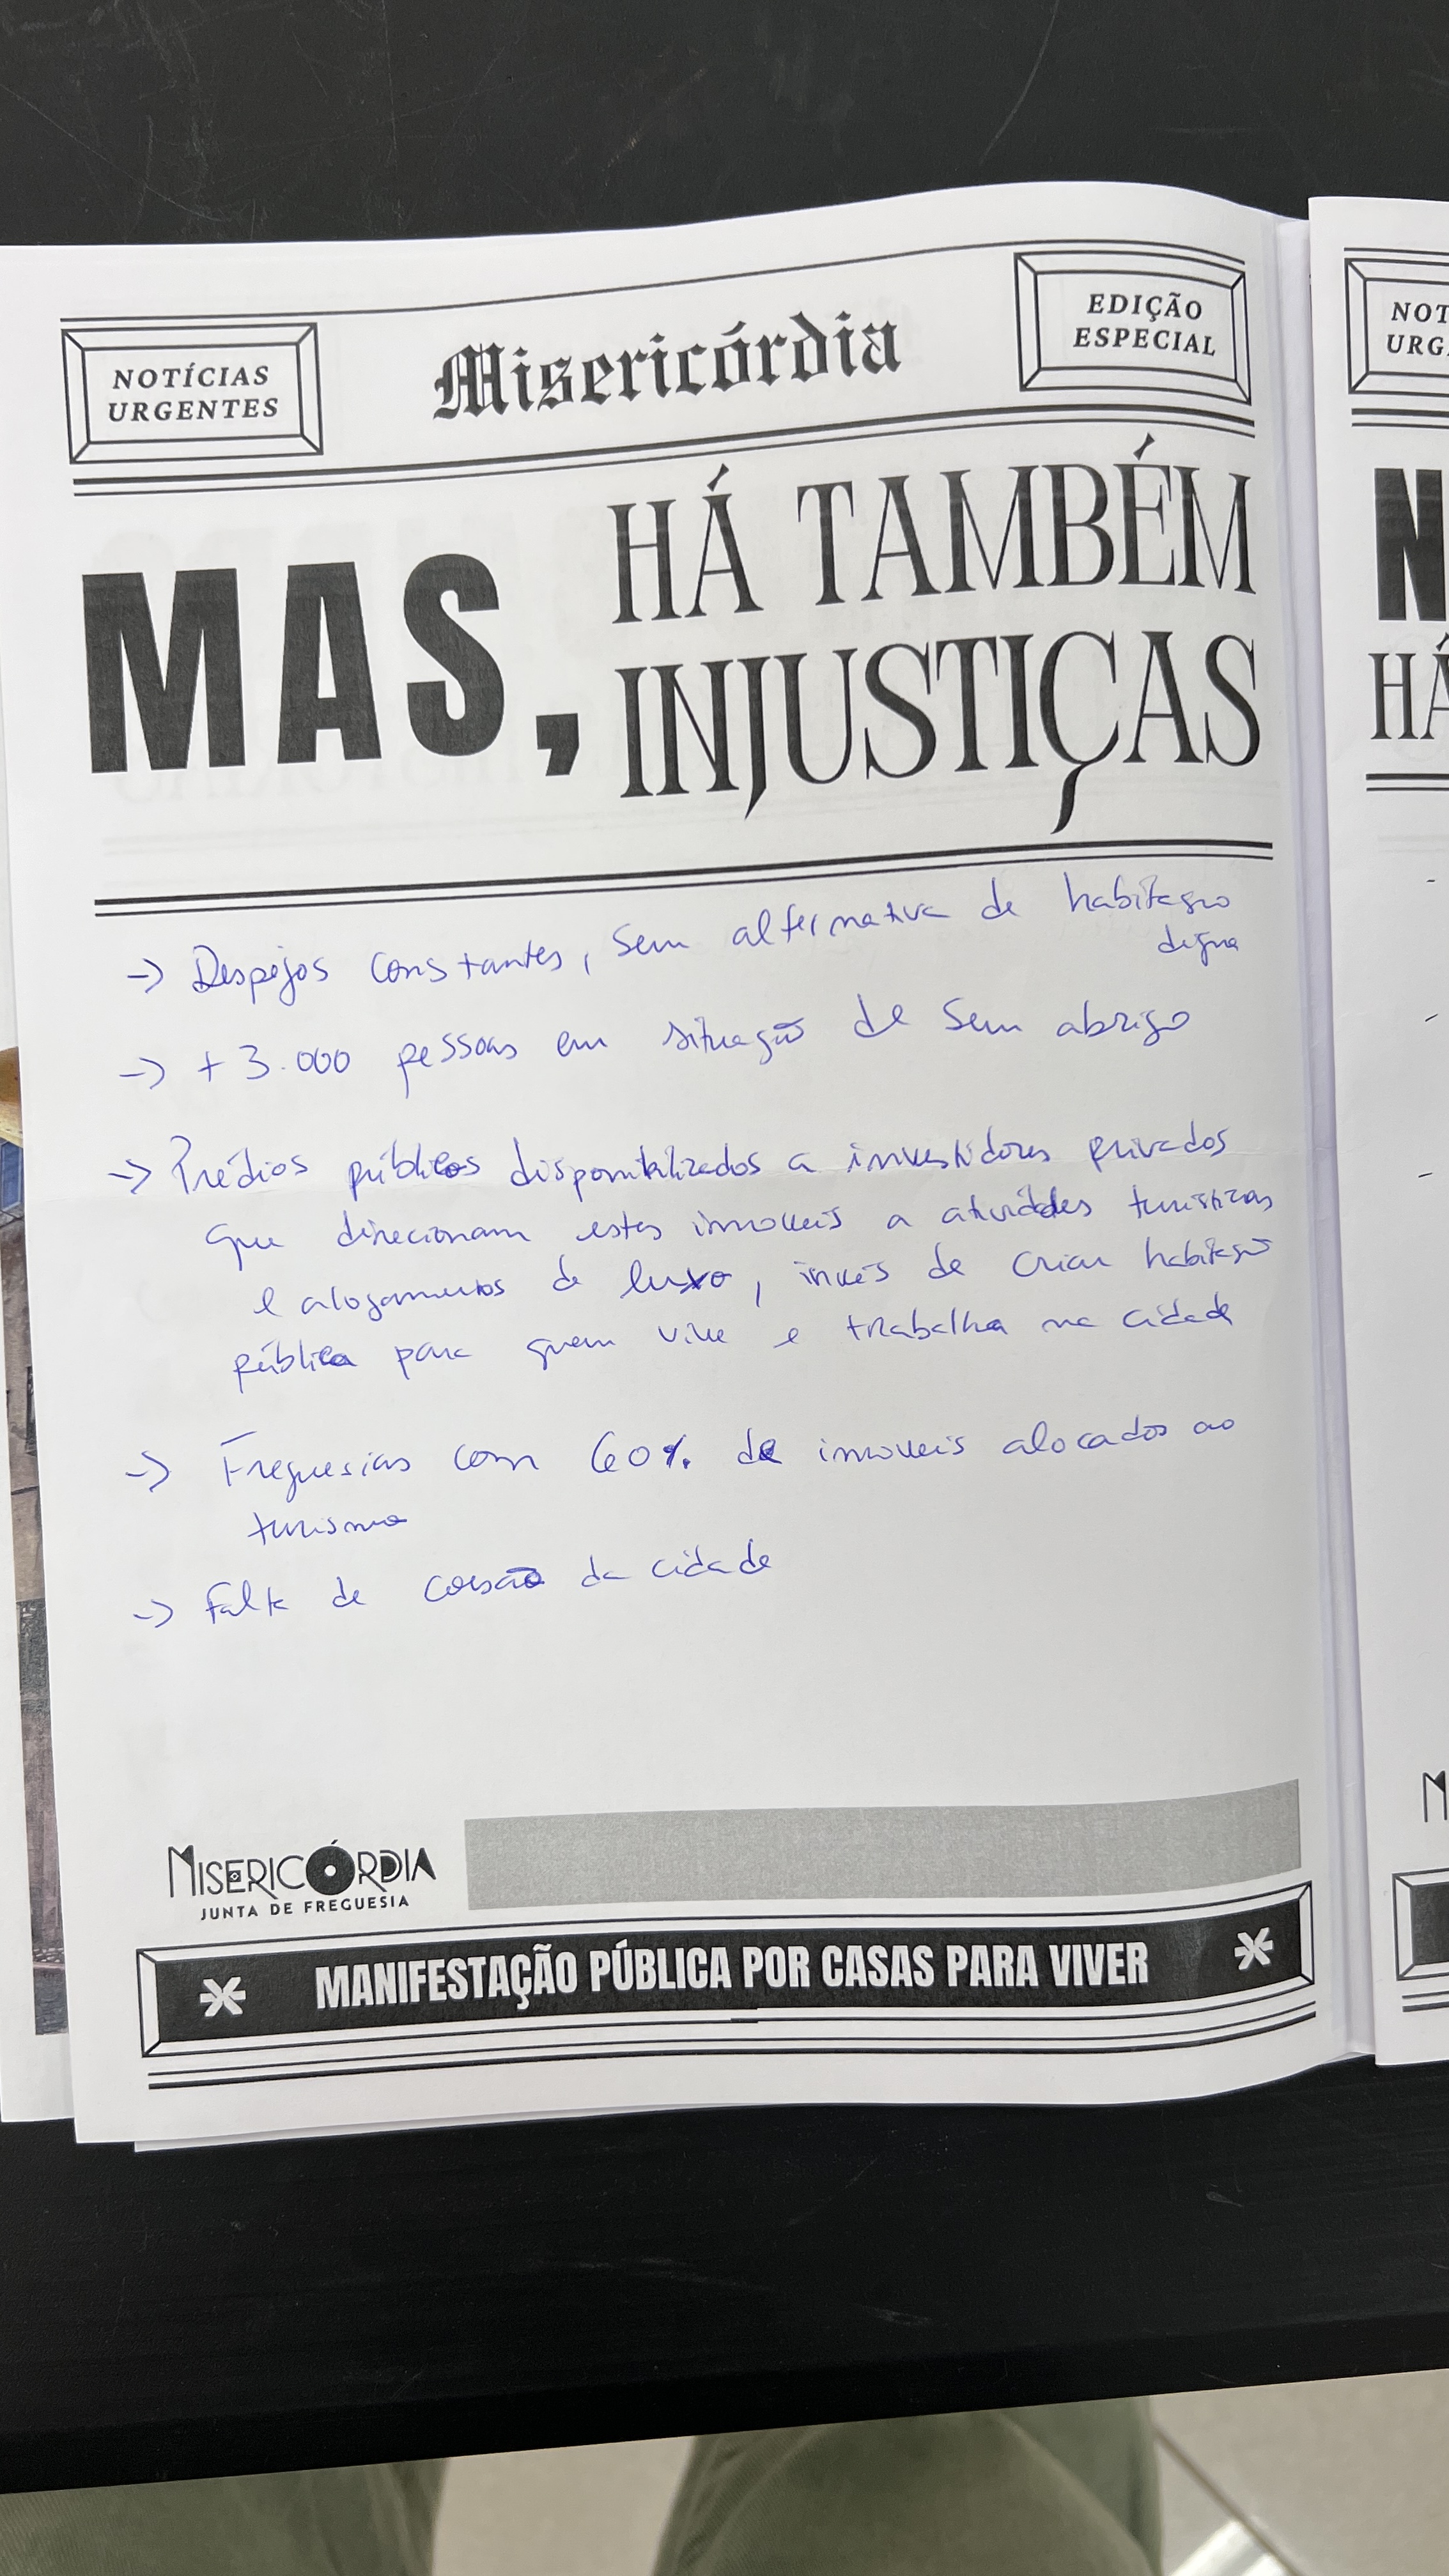 NOTÍCIAS
URGENTES
Misericórdia
EDIÇÃO
ESPECIAL
MAS,
HÁ TAMBÉM
INJUSTIÇAS
-> Despejos constantes, sem alternativa de habitação
digna
-> + 3.000 pessoas em situação de sem abrigo
-> Prédios públicos disponibilizados a investidores privados
que direcionam estes imoveis a atividades turisticas
e alojamentos de luxo, invés de criar habitação
pública para quem vive e trabalha na cidade
-> Freguesias com 60% de imoveis alocados ao
turismo
-> Falta de coesão da cidade
MISERICÓRDIA
JUNTA DE FREGUESIA
MANIFESTAÇÃO PÚBLICA POR CASAS PARA VIVER
NOT
URG
N
HÁ